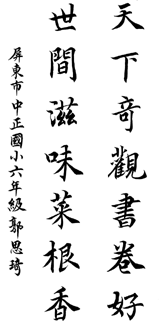 天下奇觀書卷好
世間滋味菜根香
屏東市中正國小六年級郭思琦